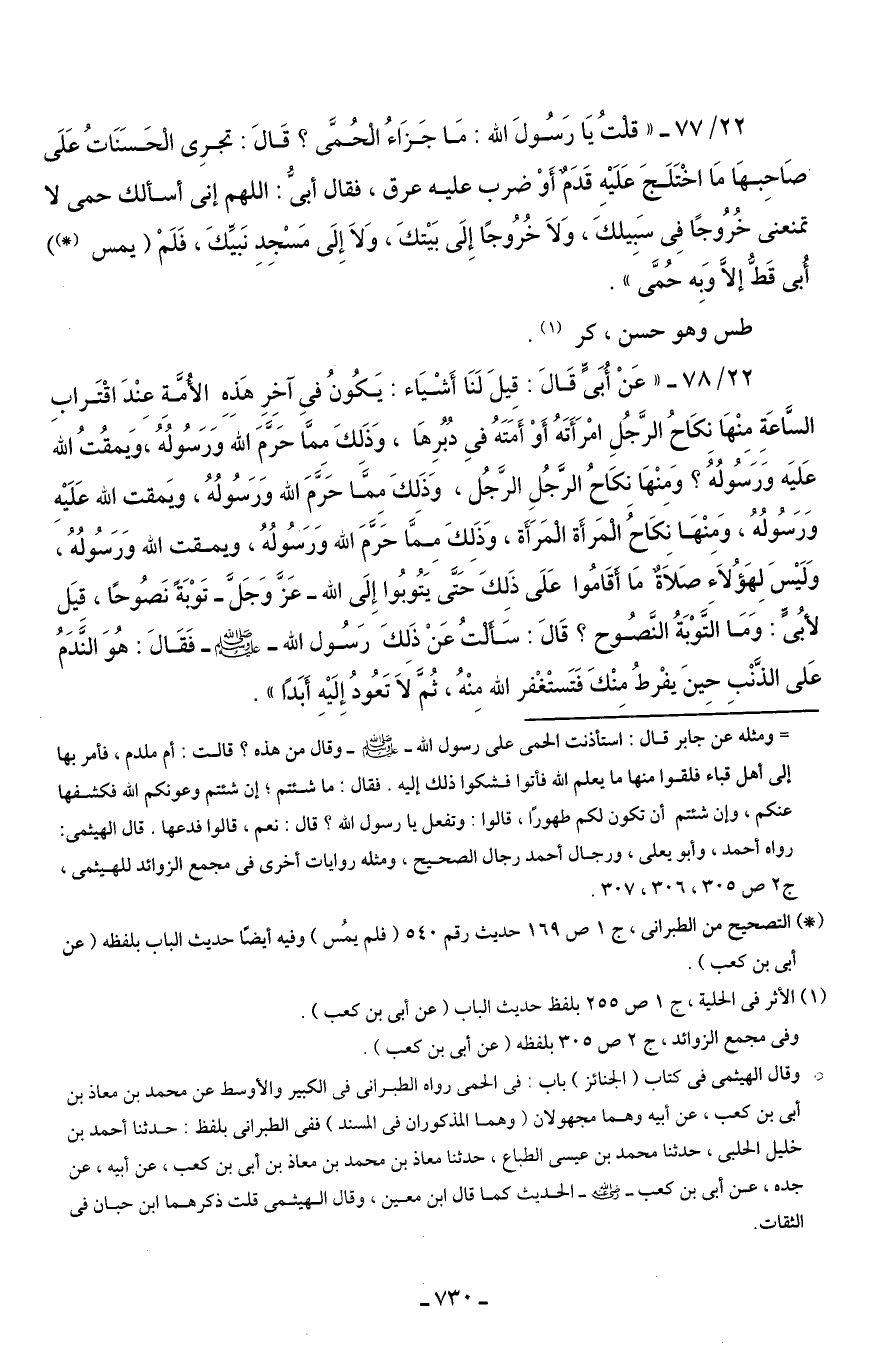 ٧٧/٢٢ ـ « قلْتُ يَا رَسُولَ الله : مَا جَزَاءُ الْحُمَّى ؟ قَالَ : تجرِى الْحَسَنَاتُ عَلَى
صَاحِبِهَا مَا اخْتَلَجَ عَلَيْهِ قَدَمٌ أَوْ ضرب عليه عرق ، فقال أبىُّ : اللهم إنى أسألك حمى لا
تمنعنى خُرُوجًا فِى سَبِيلكَ ، وَلاَ خُرُوجًا إِلَى بَيْتكَ ، وَلاَ إِلَى مَسْجِدِ نَبِيِّكَ ، فَلَمْ ( يمس (*))
أُبى قَطُّ إلاَّ وَبِه حُمَّى » .
طس وهو حسن ، كر (١) .
٧٨/٢٢ ـ « عَنْ أُبَىٍّ قَالَ : قيلَ لَنَا أَشْيَاء : يَكُونُ فِى آخِرِ هَذِهِ الأُمَّةِ عِنْدَ اقْتِرابِ
السَّاعَةِ مِنْهَا نِكَاحُ الرَّجُلِ امْرَأَتَهُ أَوْ أَمَتَهُ فِى دُبُرِهَا ، وَذَلِكَ مِمَّا حَرَّمَ الله وَرَسُولُهُ ،وَيَمقُتُ الله
عَلَيْه وَرَسُولُهُ ؟ وَمَنْهَا نِكَاحُ الرَّجُلِ الرَّجُلَ ، وَذَلكَ ممَّا حَرَّمَ الله وَرَسُولُهُ ، ويَمقت الله عَلَيْهِ
وَرَسُولُهُ ، وَمِنْهَا نِكَاحُ الْمَرأَة الْمَرأَةَ ، وَذَلِكَ مِمَّا حَرَّمَ الله وَرَسُولُهُ ، ويمقت الله وَرَسُولُهُ ،
وَلَيْسَ لِهَؤُلاَءِ صَلاَةٌ مَا أَقَامُوا عَلَى ذَلِكَ حَتَّى يَتُوبُوا إِلَى الله ـ عَزَّ وَجَلَّ ـ تَوْبَةً نَصُوحًا ، قيَل
لأُبىٍّ : وَمَا التَّوْبَةُ النَّصُوح ؟ قَالَ : سَأَلْتُ عَنْ ذَلِكَ رَسُولَ الله ـ ﷺ ـ فَقَالَ : هُوَ النَّدَمُ
عَلَى الذَّنْبِ حِينَ يفْرطُ مِنْكَ فَتَسْتَغْفر الله مِنْهُ ، ثُمَّ لاَ تَعُودُ إِلَيْهِ أَبَدًا » .
= ومثله عن جابر قال : استأذنت الحمى على رسول الله ـ ﷺ ـ وقال من هذه ؟ قالت : أم ملدم ، فأمر بها
إلى أهل قباء فلقوا منها ما يعلم الله فأتوا فشكوا ذلك إليه . فقال : ما شئتم ؛ إن شئتم وعونكم الله فكشفها
عنكم ، وإن شئتم أن تكون لكم طهورًا ، قالوا : وتفعل يا رسول الله ؟ قال : نعم ، قالوا فدعها . قال الهيثمى:
رواه أحمد ، وأبو يعلى ، ورجال أحمد رجال الصحيح ، ومثله روايات أخرى فى مجمع الزوائد للهيثمى ،
ج٢ ص ٣٠٥ ، ٣٠٦ ، ٣٠٧ .
(*) التصحيح من الطبرانى ، ج ١ ص ١٦٩ حديث رقم ٥٤٠ ( فلم يمُس ) وفيه أيضًا حديث الباب بلفظه ( عن
أبى بن كعب ) .
(١) الأثر فى الحلية ، ج ١ ص ٢٥٥ بلفظ حديث الباب ( عن أبى بن كعب ) .
وفى مجمع الزوائد ، ج ٢ ص ٣٠٥ بلفظه ( عن أبى بن كعب ) .
وقال الهيثمى فى كتاب ( الجنائز ) باب : فى الحمى رواه الطبرانى فى الكبير والأوسط عن محمد بن معاذ بن
أبى بن كعب ، عن أبيه وهما مجهولان ( وهما المذكوران فى المسند ) ففى الطبرانى بلفظ : حدثنا أحمد بن
خليل الحلبى ، حدثنا محمد بن عيسى الطباع ، حدثنا معاذ بن محمد بن معاذ بن أبى بن كعب ، عن أبيه ، عن
جده ، عن أبى بن كعب ـ رضي الله عنه ـ الحديث كما قال ابن معين ، وقال الهيثمى قلت ذكرهما ابن حبان فى
الثقات.
ـ ٧٣٠ ـ